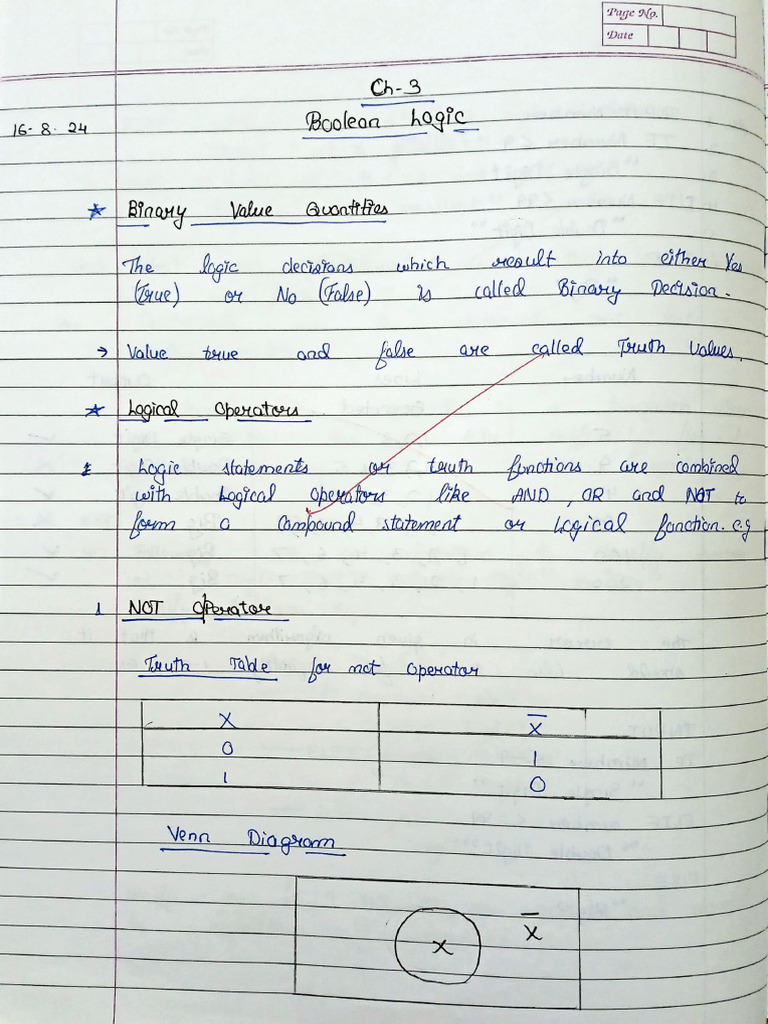 Page No.
Date
Ch-3
16-8-24
Boolean Logic
* Binary Value Quantities
The logic decisions which result into either Yes
(True) or No (False) is called Binary Decision.
→ Value true and false are called Truth values.
* Logical Operators
Logic statements or truth functions are combined
with Logical operators like AND, OR and NOT to
form a compound statement or Logical function. e.g
1 NOT Operator
Truth Table for not operator
X X̅
0 1
1 0
Venn Diagram
X X̅